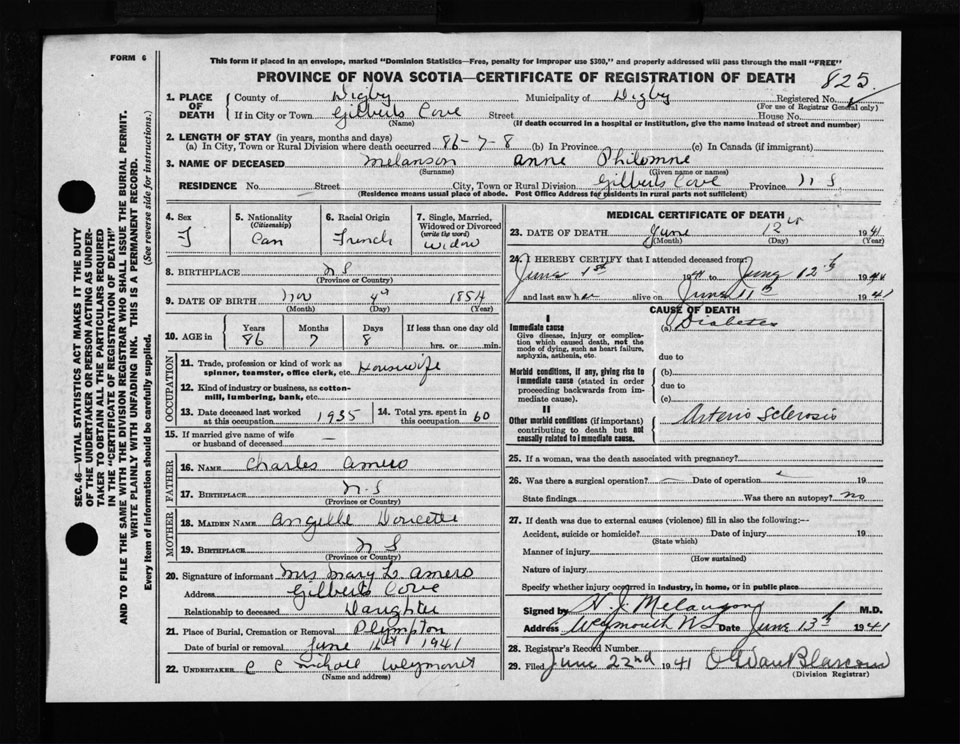 FORM 6
SEC. 46—VITAL STATISTICS ACT MAKES IT THE DUTY
OF THE UNDERTAKER OR PERSON ACTING AS UNDER-
TAKER TO OBTAIN ALL THE PARTICULARS REQUIRED
IN THE "CERTIFICATE OF REGISTRATION OF DEATH"
AND TO FILE THE SAME WITH THE DIVISION REGISTRAR WHO SHALL ISSUE THE BURIAL PERMIT.
WRITE PLAINLY WITH UNFADING INK. THIS IS A PERMANENT RECORD.
Every item of information should be carefully supplied. (See reverse side for instructions.)
This form if placed in an envelope, marked "Dominion Statistics—Free, penalty for improper use $300," and properly addressed will pass through the mail "FREE"
PROVINCE OF NOVA SCOTIA—CERTIFICATE OF REGISTRATION OF DEATH
825
1. PLACE OF DEATH County of Digby Municipality of Digby Registered No.
(For use of Registrar General only)
If in City or Town Gilberts Cove Street House No.
(Name) (If death occurred in a hospital or institution, give the name instead of street and number)
2. LENGTH OF STAY (in years, months and days)
(a) In City, Town or Rural Division where death occurred 86-7-8 (b) In Province (c) In Canada (if immigrant)
3. NAME OF DECEASED Melanson Anne Philomne
(Surname) (Given name or names)
RESIDENCE No. Street City, Town or Rural Division Gilberts Cove Province N S
(Residence means usual place of abode. Post Office Address for residents in rural parts not sufficient)
4. Sex
F
5. Nationality
(Citizenship)
Can
6. Racial Origin
French
7. Single, Married,
Widowed or Divorced
(write the word)
Widow
8. BIRTHPLACE N S
(Province or Country)
9. DATE OF BIRTH Nov 4th 1854
(Month) (Day) (Year)
10. AGE in
Years Months Days If less than one day old
86 7 8 hrs. or min.
OCCUPATION
11. Trade, profession or kind of work as
spinner, teamster, office clerk, etc. Housewife
12. Kind of industry or business, as cotton-
mill, lumbering, bank, etc.
13. Date deceased last worked
at this occupation 1935
14. Total yrs. spent in
this occupation 60
15. If married give name of wife
or husband of deceased —
FATHER
16. NAME Charles Amero
17. BIRTHPLACE N.S
(Province or Country)
MOTHER
18. MAIDEN NAME Angelle Doucette
19. BIRTHPLACE N S
(Province or Country)
20. Signature of informant Mrs Mary L. Amero
Address Gilberts Cove
Relationship to deceased Daughter
21. Place of Burial, Cremation or Removal Plympton
Date of burial or removal June 1941
22. UNDERTAKER C C Weymouth
(Name and address)
MEDICAL CERTIFICATE OF DEATH
23. DATE OF DEATH June 12th 1941
(Month) (Day) (Year)
24. I HEREBY CERTIFY that I attended deceased from
June 1st 1941 to June 12th 1941
and last saw her alive on June 11th 1941
CAUSE OF DEATH
I
Immediate cause (a) Diabetes
Give disease, injury or complica-
tion which caused death, not the
mode of dying, such as heart failure,
asphyxia, asthenia, etc. due to
Morbid conditions, if any, giving rise to
immediate cause (stated in order
proceeding backwards from im-
mediate cause).
(b)
due to
(c)
II
Other morbid conditions (if important)
contributing to death but not
causally related to immediate cause.
Arterio Sclerosis
25. If a woman, was the death associated with pregnancy?
26. Was there a surgical operation? — Date of operation 19
State findings Was there an autopsy? no
27. If death was due to external causes (violence) fill in also the following:—
Accident, suicide or homicide? Date of injury 19
(State which)
Manner of injury
(How sustained)
Nature of injury
Specify whether injury occurred in industry, in home, or in public place
Signed by H J Melançon M.D.
Address Weymouth NS Date June 13th 1941
28. Registrar's Record Number
29. Filed June 22nd 1941
(Division Registrar)